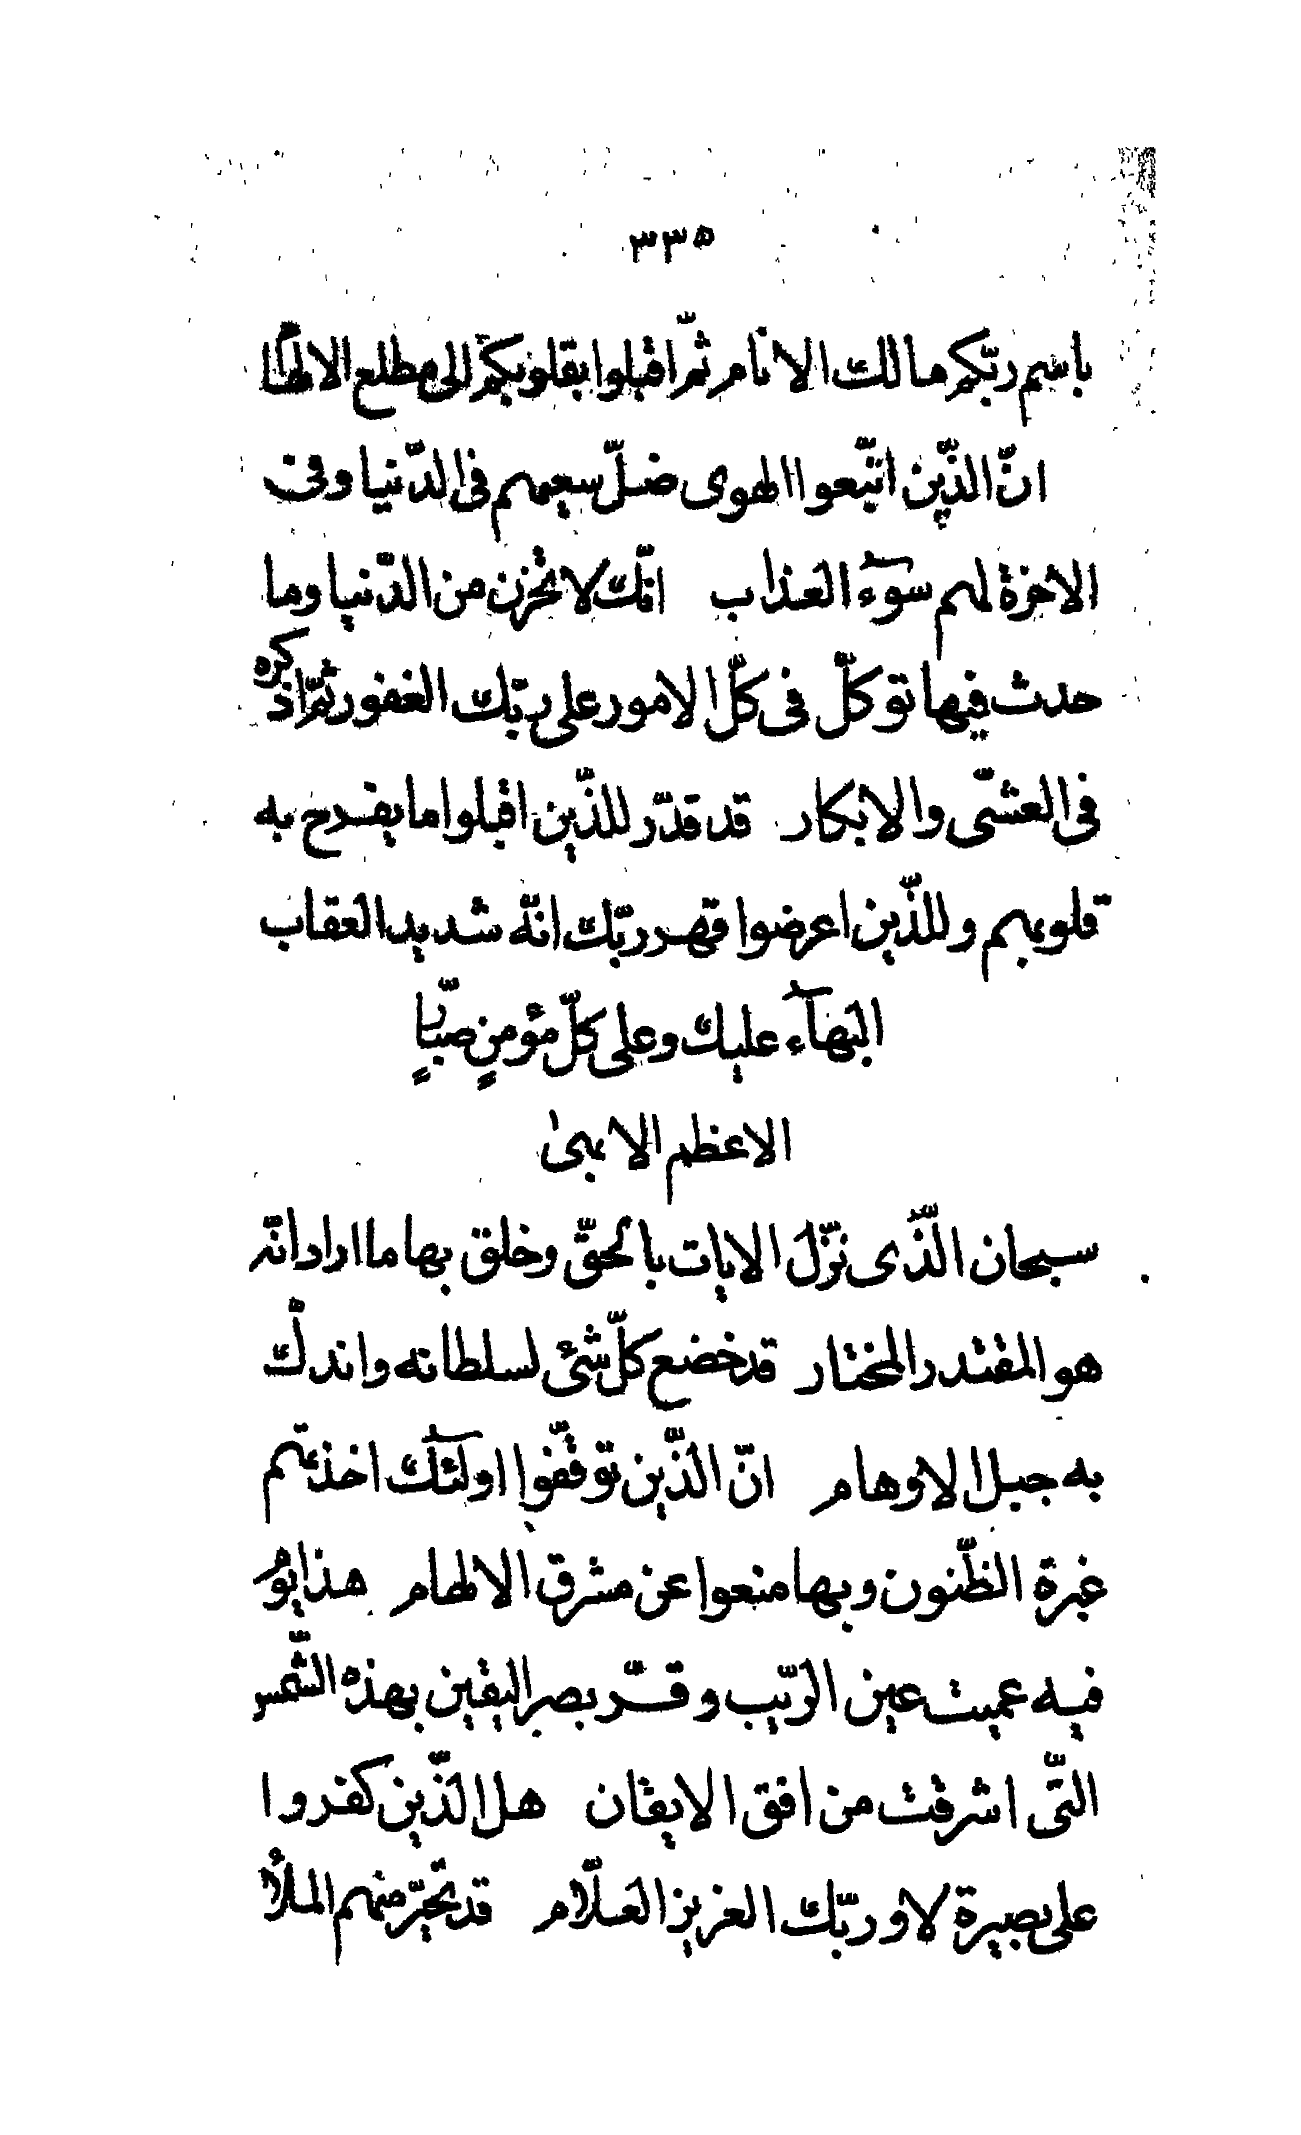 ٣٣٥
باسم ربّكم مالك الانام ثمّ اقبلوا بقلوبكم الى مطلع الالهام
انّ الّذين اتّبعوا الهوى ضلّ سعيهم فى الدّنيا وفى
الاخرة لهم سوٓء العذاب انّك لا تحزن من الدّنيا وما
حدث فيها توكّل فى كلّ الامور على ربّك الغفور ثمّ اذكره
فى العشىّ والابكار قد قدّر للّذين اقبلوا ما يفرح به
قلوبهم وللّذين اعرضوا قهر ربّك انّه شديد العقاب
البهآء عليك وعلى كلّ مؤمنٍ صبّارٍ
الاعظم الابهىٰ
سبحان الّذى نزّل الايات بالحقّ وخلق بها ما اراد انّه
هو المقتدر المختار قد خضع كلّ شئ لسلطانه واندكّ
به جبل الاوهام انّ الّذين توقّفوا اولٓئك اخذتهم
غبرة الظّنون وبها منعوا عن مشرق الالهام هذا يوم
فيه عميت عين الرّيب وقرّ بصر اليقين بهذه الشّمس
الّتى اشرقت من افق الايقان هل الّذين كفروا
على بصيرة لا وربّك العزيز العلّام قد تحيّر منهم الملأ